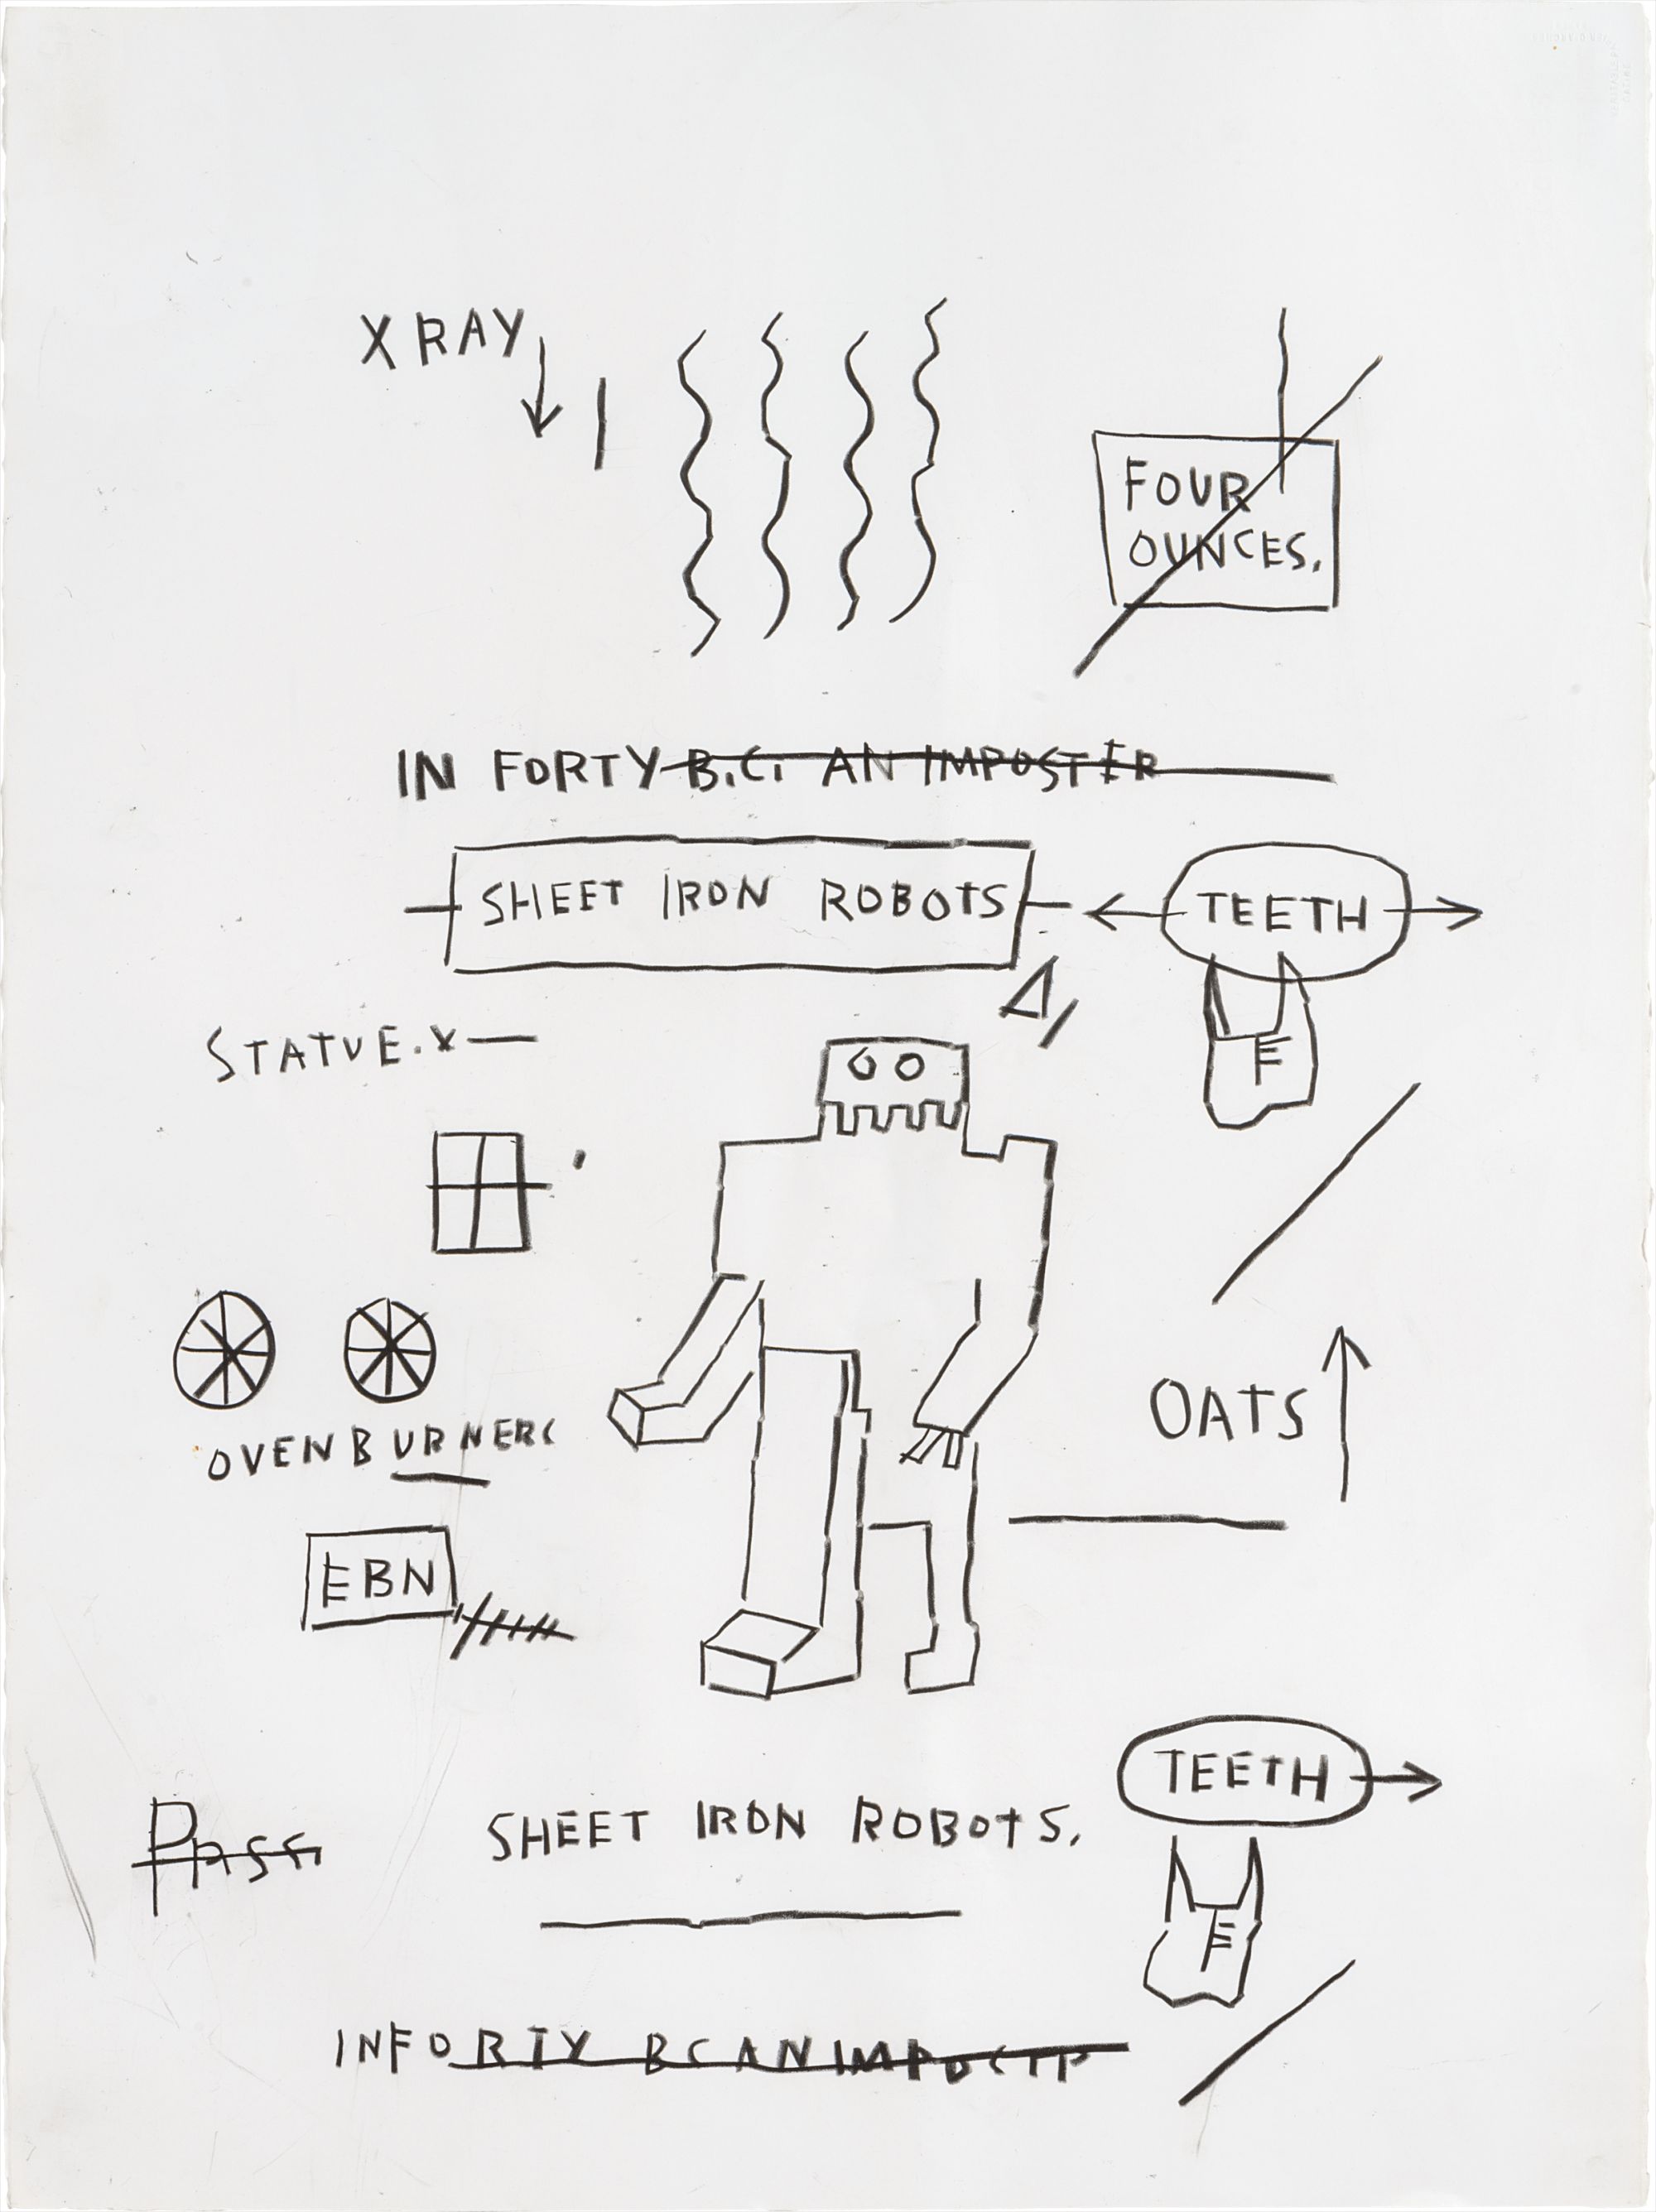 X RAY
FOUR
OUNCES.
IN FORTY B.C. AN IMPOSTER
SHEET IRON ROBOTS
TEETH
STATUE.X—
F
OATS
OVEN BURNERS
EBN
TEETH
SHEET IRON ROBOTS.
F
INFORTY BCAN